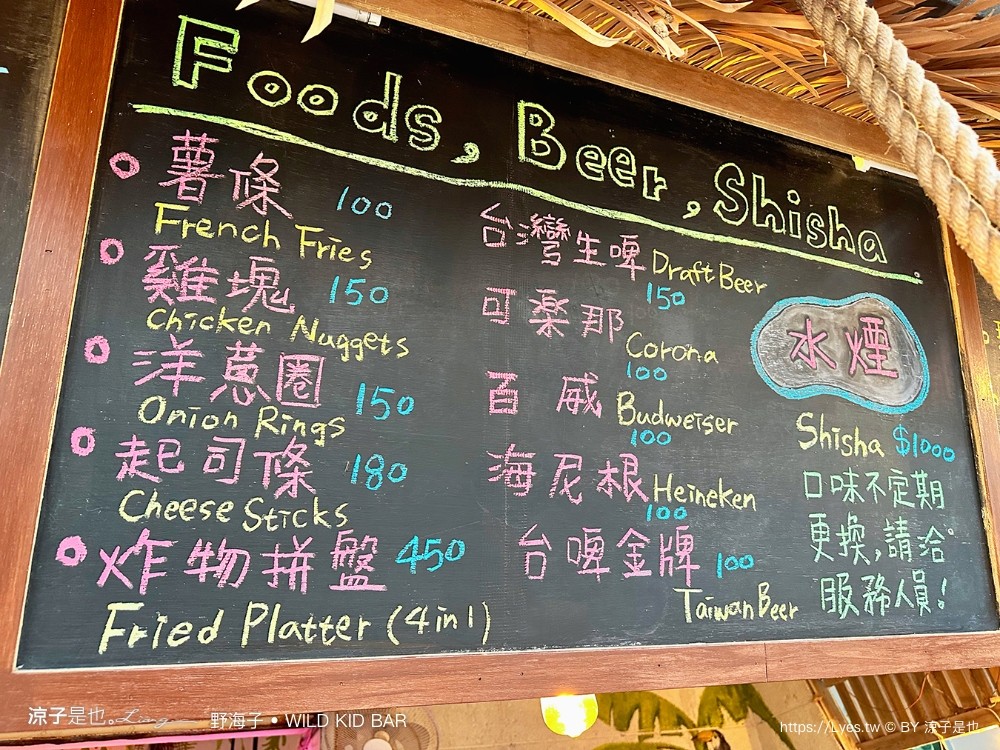 Foods, Beer, Shisha.
薯條 100
French Fries
雞塊 150
Chicken Nuggets
洋蔥圈 150
Onion Rings
起司條 180
Cheese Sticks
炸物拼盤 450
Fried Platter (4in1)
台灣生啤 Draft Beer
150
可樂那
Corona
100
百威 Budweiser
100
海尼根 Heineken
100
台啤金牌 100
Taiwan Beer
水煙
Shisha $1000
口味不定期
更換,請洽
服務人員!
涼子是也。 野海子 • WILD KID BAR
https://Lyes.tw © BY 涼子是也